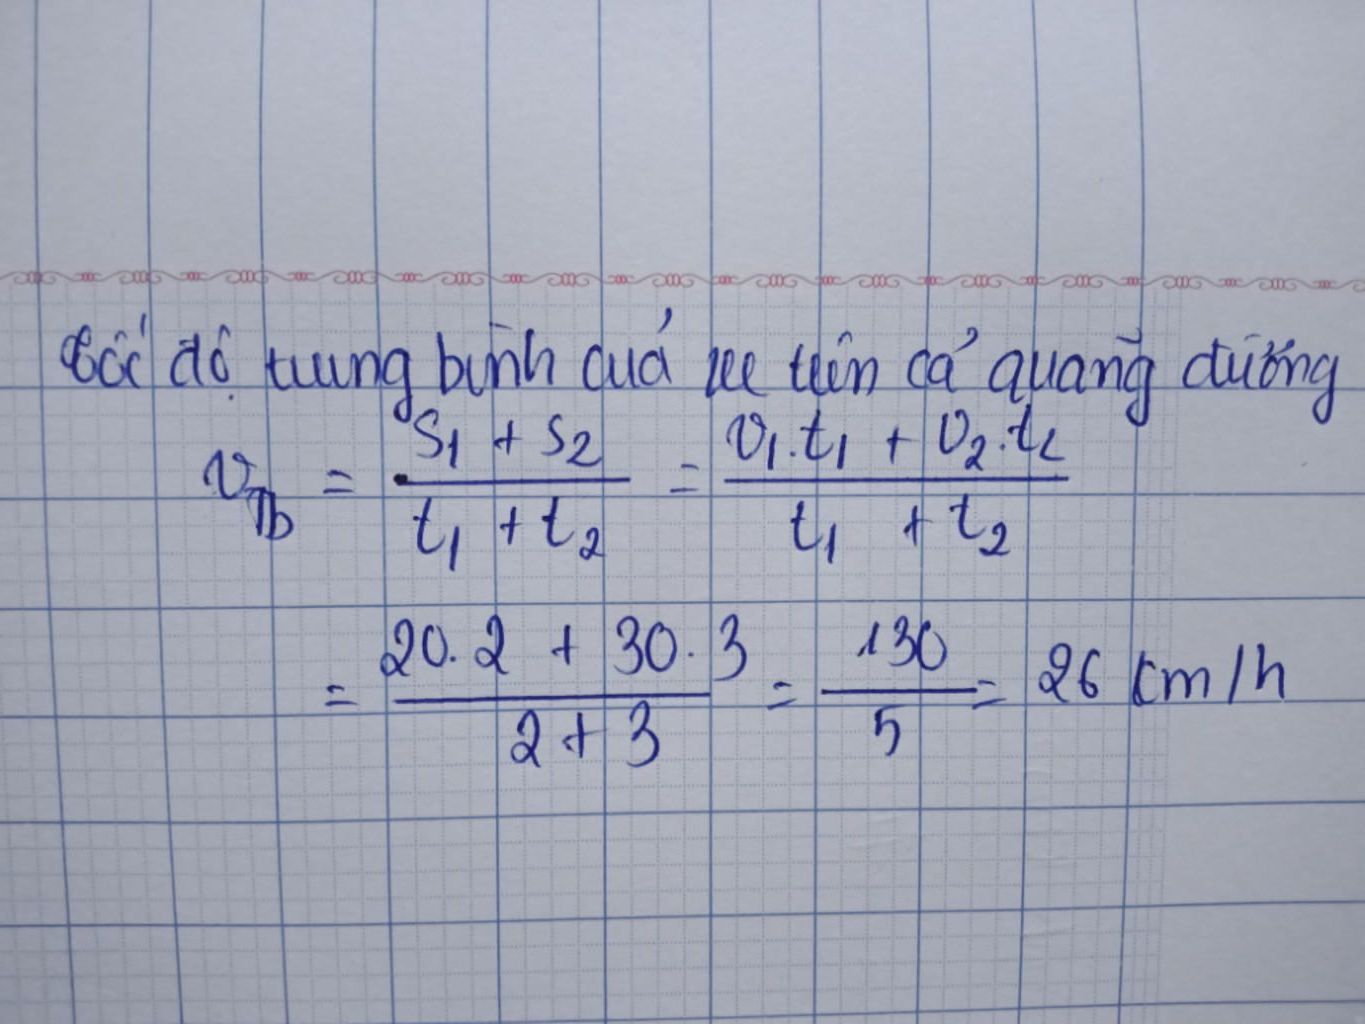 Tốc độ trung bình của xe trên cả quãng đường
v_Tb = (S₁ + S₂)/(t₁ + t₂) = (v₁.t₁ + v₂.t₂)/(t₁ + t₂)
= (20.2 + 30.3)/(2+3) = 130/5 = 26 km/h